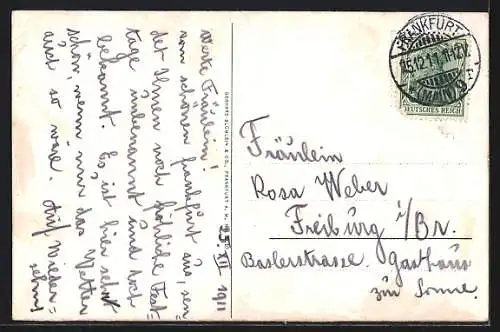 Werte Fräulein!
vom schönen Frankfurt aus, sen-
det Ihnen noch fröhliche Fest-
tage unbenannt und doch
bekannt. Es ist hier sehr
schön, wenn nur das Wetter
auch so wäre. Auf Wieder-
sehn!
25. XII 1911
GEBRÜDER BLÜMLEIN & CO., FRANKFURT A. M.
FRANKFURT
25.12.11. 11-12V.
(MAIN)
DEUTSCHES REICH
Fräulein
Rosa Weber
Freiburg i/Br.
Baslerstrasse. Gasthaus
zur Sonne.